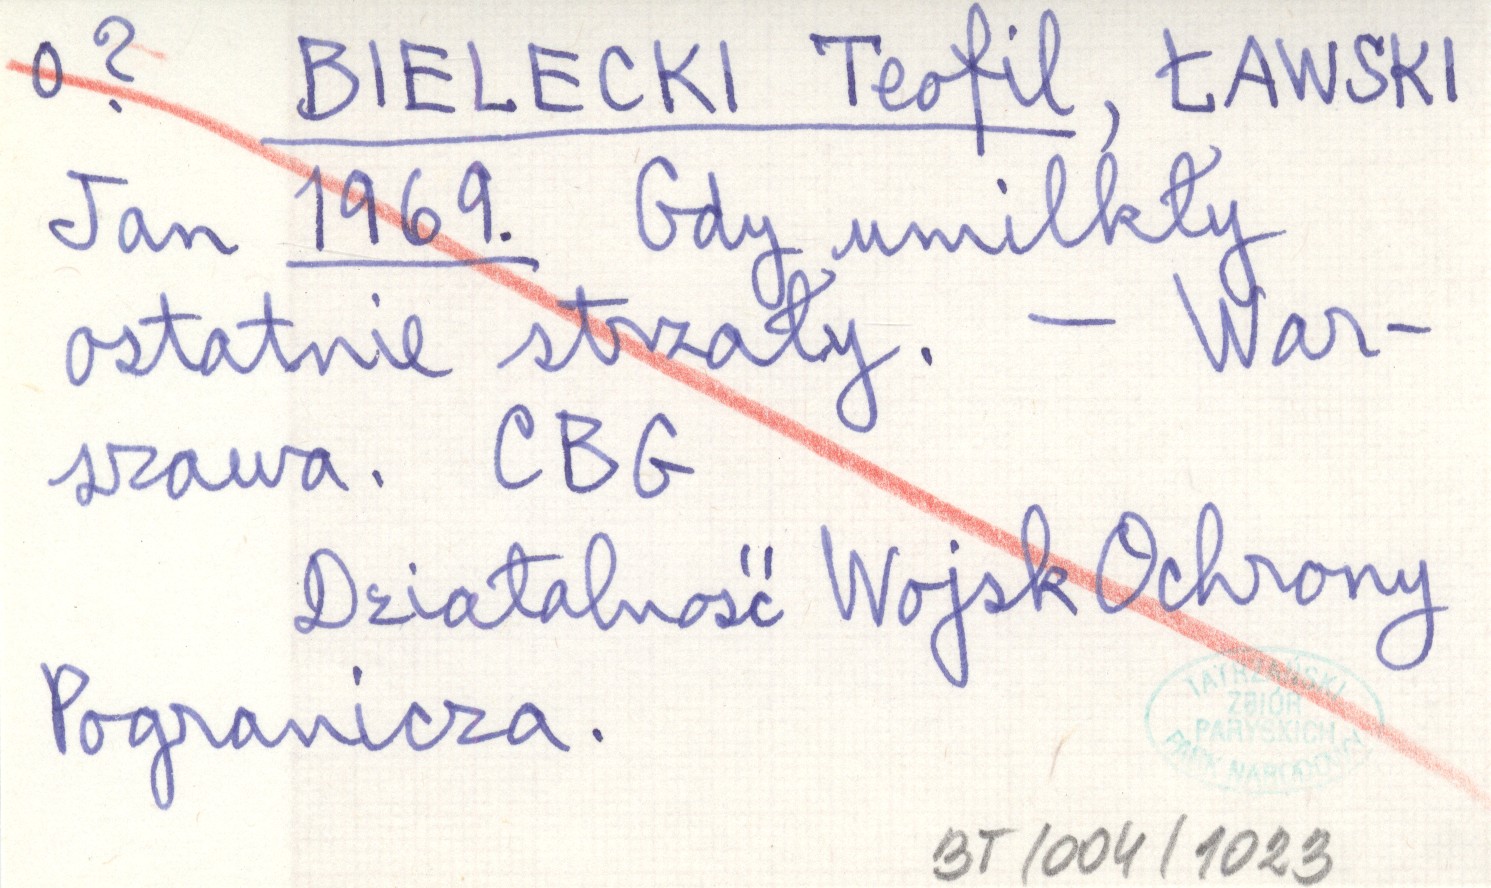 o? BIELECKI Teofil, ŁAWSKI
Jan 1969. Gdy umilkły
ostatnie strzały. — War-
szawa. CBG
Działalność Wojsk Ochrony
Pogranicza.
TATRZAŃSKI
ZBIÓR
PARYSKICH
PARK NARODOWY
BT/004/1023